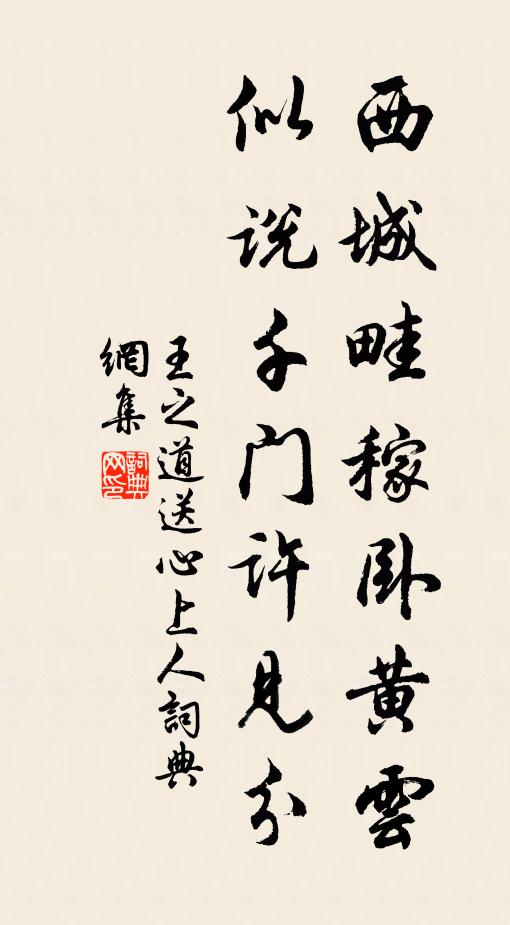 西城畦稼卧黄雲
似说千门許見分
王之道送心上人詞典
網集
詞典网印